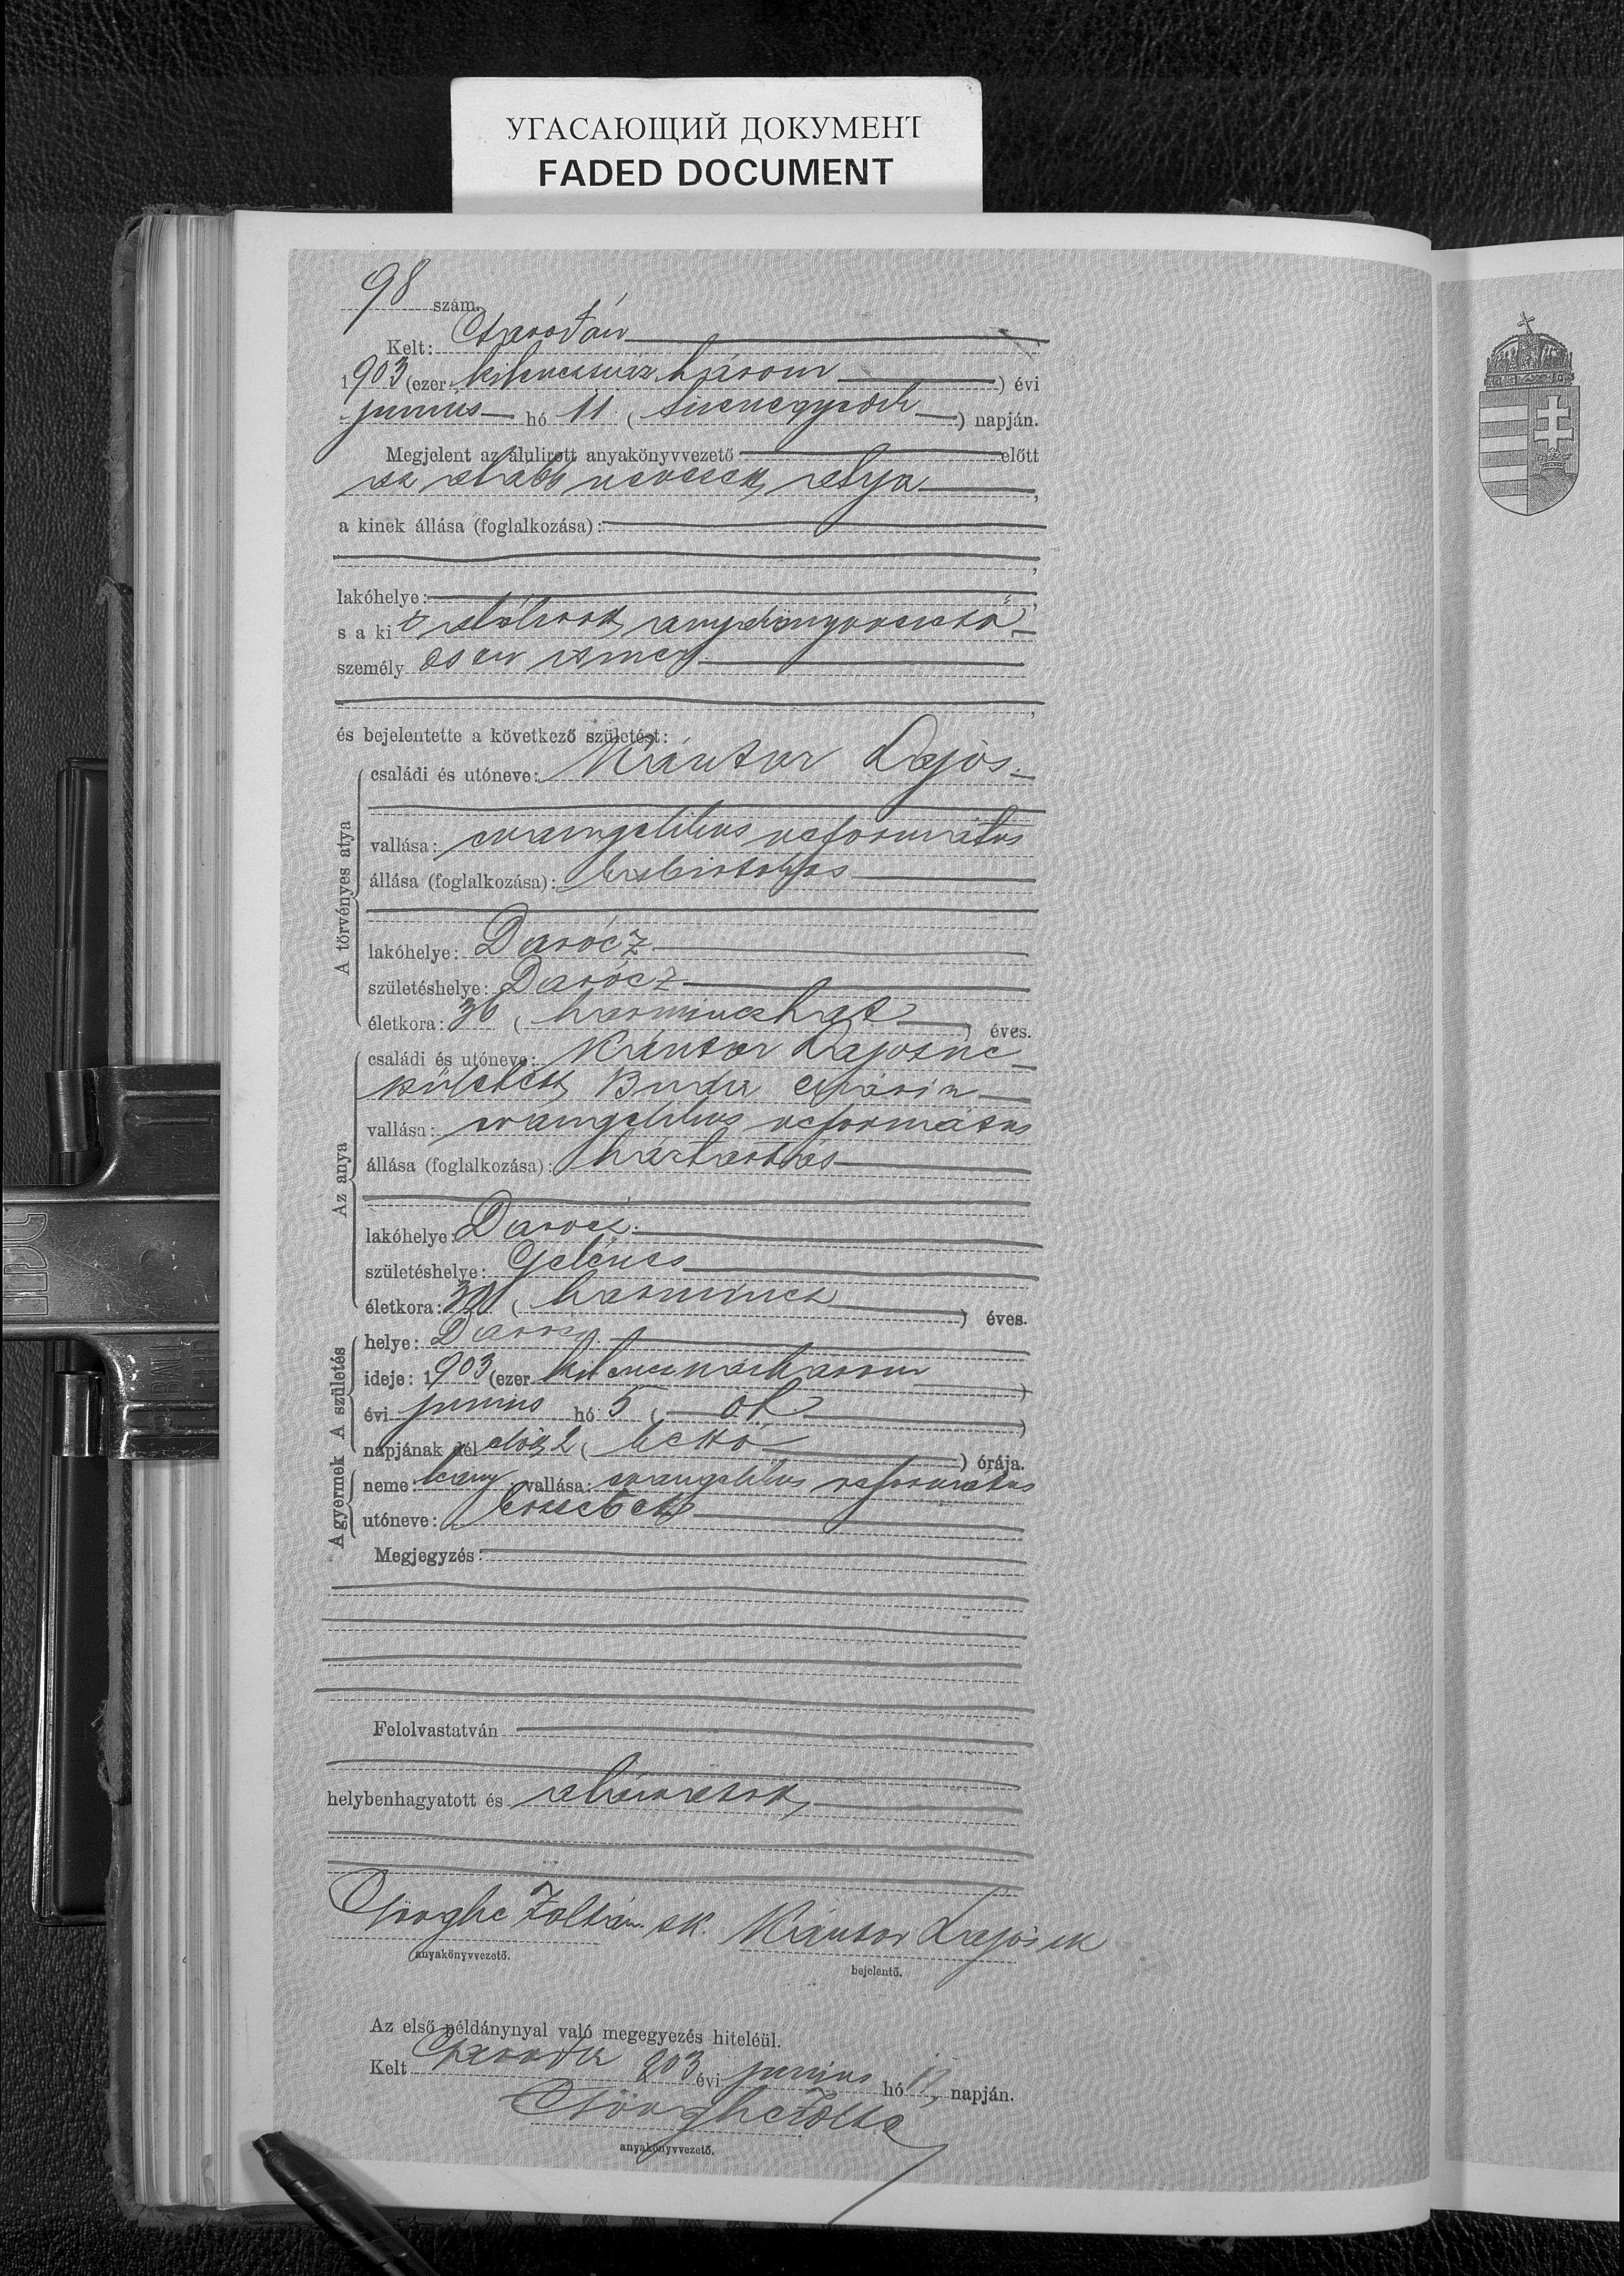 УГАСАЮЩИЙ ДОКУМЕНТ
FADED DOCUMENT
98 szám.
Kelt: Csarodán
1903 (ezer kilencszáz három) évi
junius hó 11 (tizenegyedik) napján.
Megjelent az álulirott anyakönyvvezető előtt
az alább nevezett atya,
a kinek állása (foglalkozása):
,
lakóhelye: ,
s a kit alólirott anyakönyvvezető
személyesen ismer
,
és bejelentette a következő születést:
A törvényes atya
családi és utóneve: Kántor Lajos.
vallása: evangelikus református
állása (foglalkozása): kisbirtokos
lakóhelye: Darócz
születéshelye: Darócz
életkora: 36 (harminczhat) éves.
Az anya
családi és utóneve: Kántor Lajosné
született Buda Mária
vallása: evangelikus református
állása (foglalkozása): háztartás
lakóhelye: Darócz.
születéshelye: Gelénes
életkora: 30 (harmincz) éves.
A születés
helye: Darócz.
ideje: 1903 (ezer kilenczszázhárom)
évi junius hó 5 (öt)
napjának dél előtt 2 (kettő) órája.
A gyermek
neme: leány vallása: evangelikus református
utóneve: Erzsébet
Megjegyzés:
Felolvastatván
helybenhagyatott és aláiratott
Zoltán sk. Kántor Lajos sk
anyakönyvvezető. bejelentő.
Az első példánynyal való megegyezés hiteléül.
Kelt Csaroda 903 évi junius hó napján.
anyakönyvvezető.